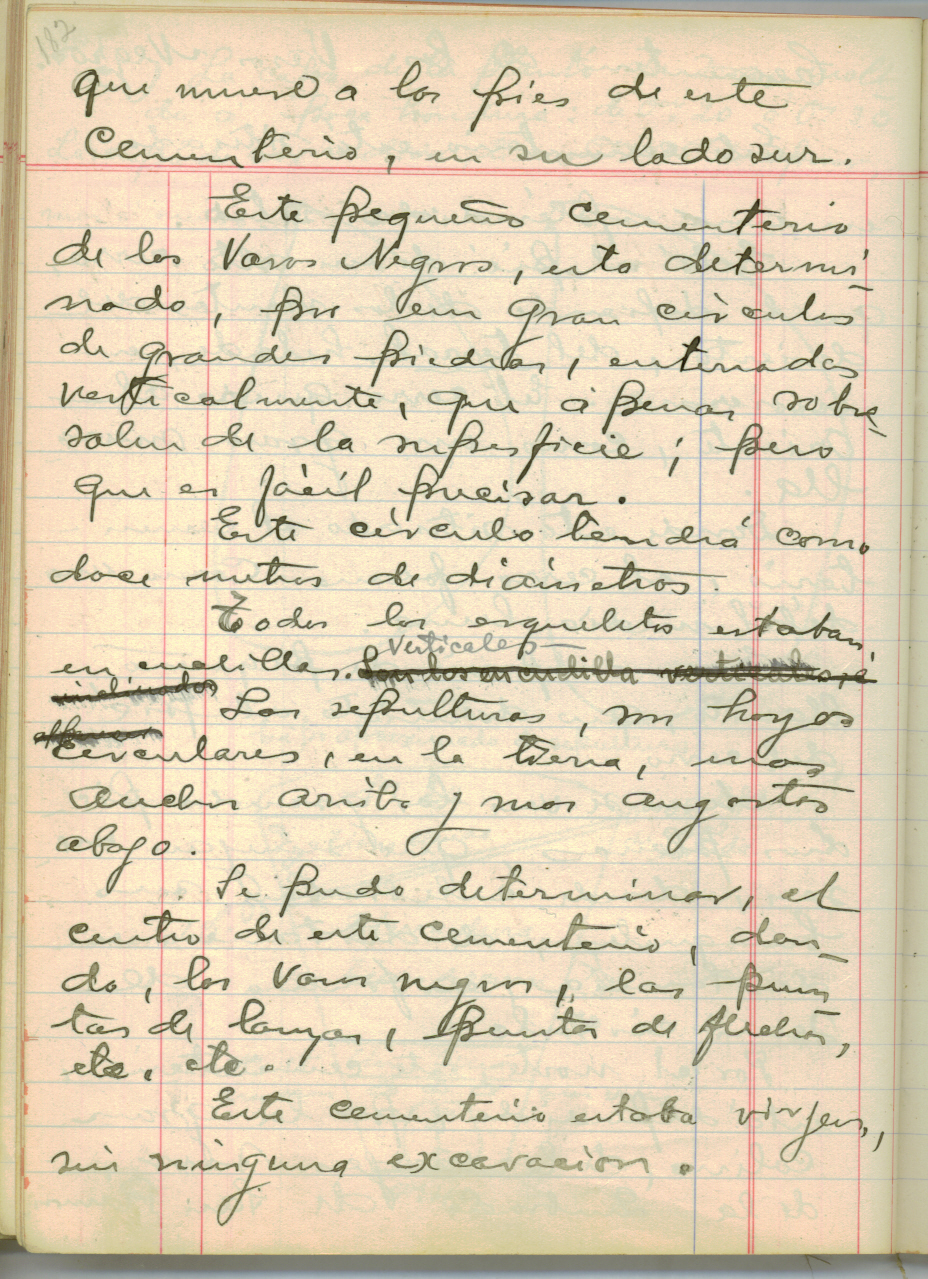 182
que muere a los pies de este
Cementerio, en su lado sur.
Este pequeño cementerio
de los Vasos Negros, esta determi
nado, por un gran circulos
de grandes piedras, enterradas
verticalmente, que apenas sobre-
salen de la superficie; pero
que es fácil precisar.
Este circulo tendrá como
doce metros de diámetros.
Todos los esqueletos estaban
Verticales
en cuclillas. Son los en cuclilla verticales
inclinados
Las sepulturas, son hoyos
circulares, en la tierra, mas
anchos arriba y mas angostos
abajo.
Se pudo determinar, el
centro de este cementerio, don-
do, los Vasos negros, las pun-
tas de lanzas, puntas de flechas,
etc, etc.
Este cementerio estaba virjen,
sin ninguna excavacion.